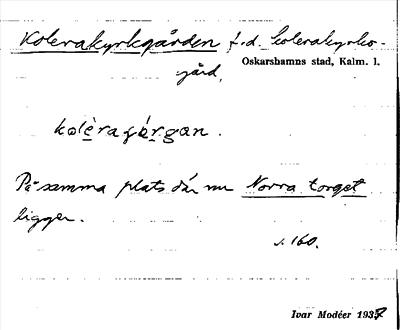 Kolerakyrkogården f.d. kolerakyrko-
gård,
Oskarshamns stad, Kalm. l.
På samma plats där nu Norra torget
ligger.
s. 160.
Ivar Modéer 1937